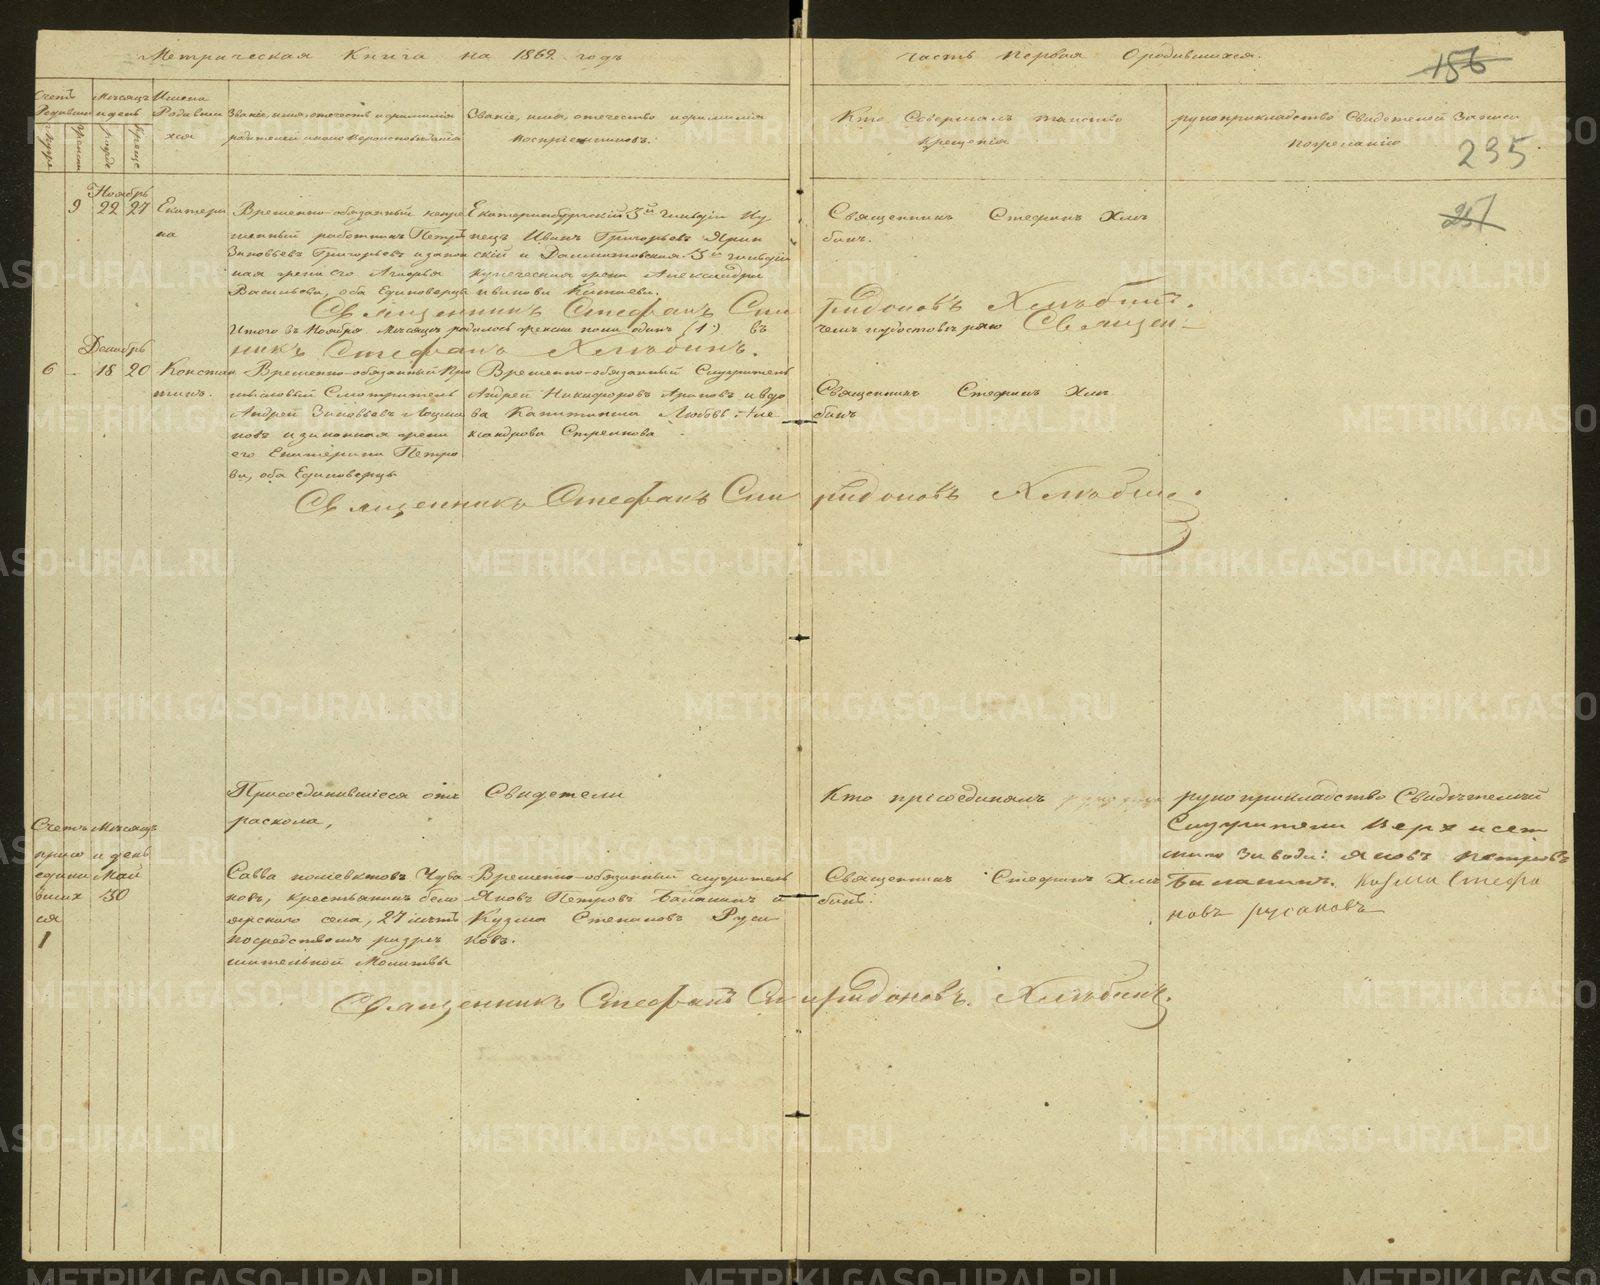 Метрическая Книга на 1862 годъ
часть первая О родившихся.
156
Счетъ Родивши
Мужс
Женск
Месяцъ и день
рожде
креще
Имена Родивши хся
Званіе, имя, отчество и фамилія
родителей и какого Вероисповѣданія
Званіе, имя, отечество и фамилія
Воспріемниковъ.
Кто Совершалъ таинство
Крещенія
рукоприкладство Свидетелей Записи
по желанію
235
257
Ноябрь
9 22 27 Екатери
на
Временно-обязанный
работникъ Петръ
Зиновьевъ Григорьевъ и закон
ная жена его
Васильева, оба Единоверцы
Екатеринбургскій 3й гильдіи Ку
пецъ Иванъ Григорьевъ
скій и Далматовская 3й гильдіи
купеческая жена Александра
Иванова Китаева.
Священникъ Стефанъ Хлѣ
бинъ.
Священникъ Стефанъ Спиридоновъ Хлѣбинъ.
Итого въ Ноябре Месяце родилось женска пола одинъ (1) въ
чемъ и удостоверяю Священ
никъ Стефанъ Хлѣбинъ.
Декабрь
6 - 18 20 Констан
тинъ.
Временно-обязанный Про
мысловый Смотритель
Андрей Зиновьевъ
новъ и законная жена
его Екатерина Петро
ва, оба Единоверцы
Временно-обязанный Служитель
Андрей Никифоровъ Араповъ и вдо
ва Капитанша Любовь Але
ксандрова Стрелкова
Священникъ Стефанъ Хлѣ
бинъ
Священникъ Стефанъ Спиридоновъ Хлѣбинъ.
Присоединившіеся отъ
раскола,
Свидетели
Кто присоединялъ
рукоприкладство Свидѣтелей
Счетъ
присо
едини
вших
ся
1
Мѣсяцъ
и день
Май
30
Савва Чува
ковъ, крестьянинъ бело
ярского села, 27 лѣтъ
посредствомъ разрѣ
шительной Молитвы
Временно-обязанный служитель
Яковъ Петровъ Балакинъ и
Кузма Степановъ Руса
ковъ.
Священникъ Стефанъ Хлѣ
бинъ.
Служители Верхъ исет
ского завода: Яковъ Петровъ
Балакинъ. Козма Стефа
новъ русаковъ
Священникъ Стефанъ Спиридоновъ. Хлѣбинъ.
METRIKI.GASO-URAL.RU